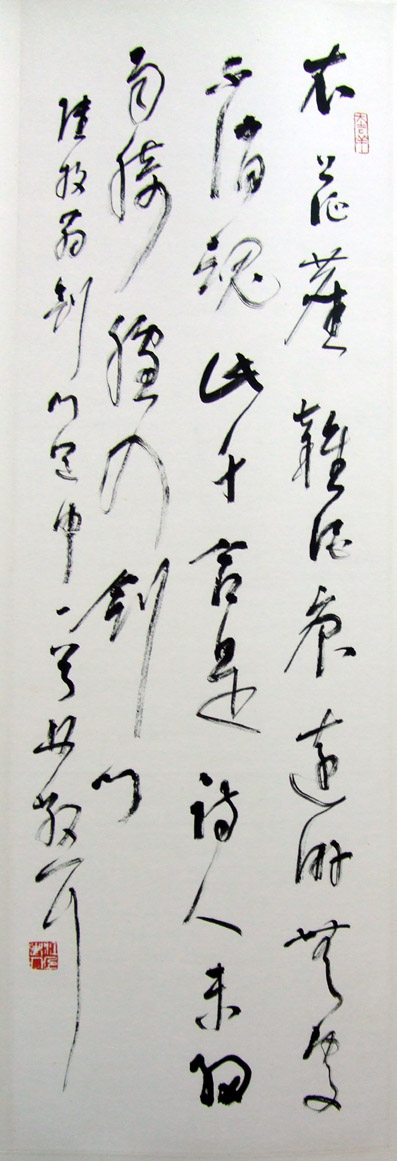 衣上征塵雜酒痕遠游無處
不消魂此身合是詩人未細
雨騎驢入劍門
陸放翁劍門道中一首